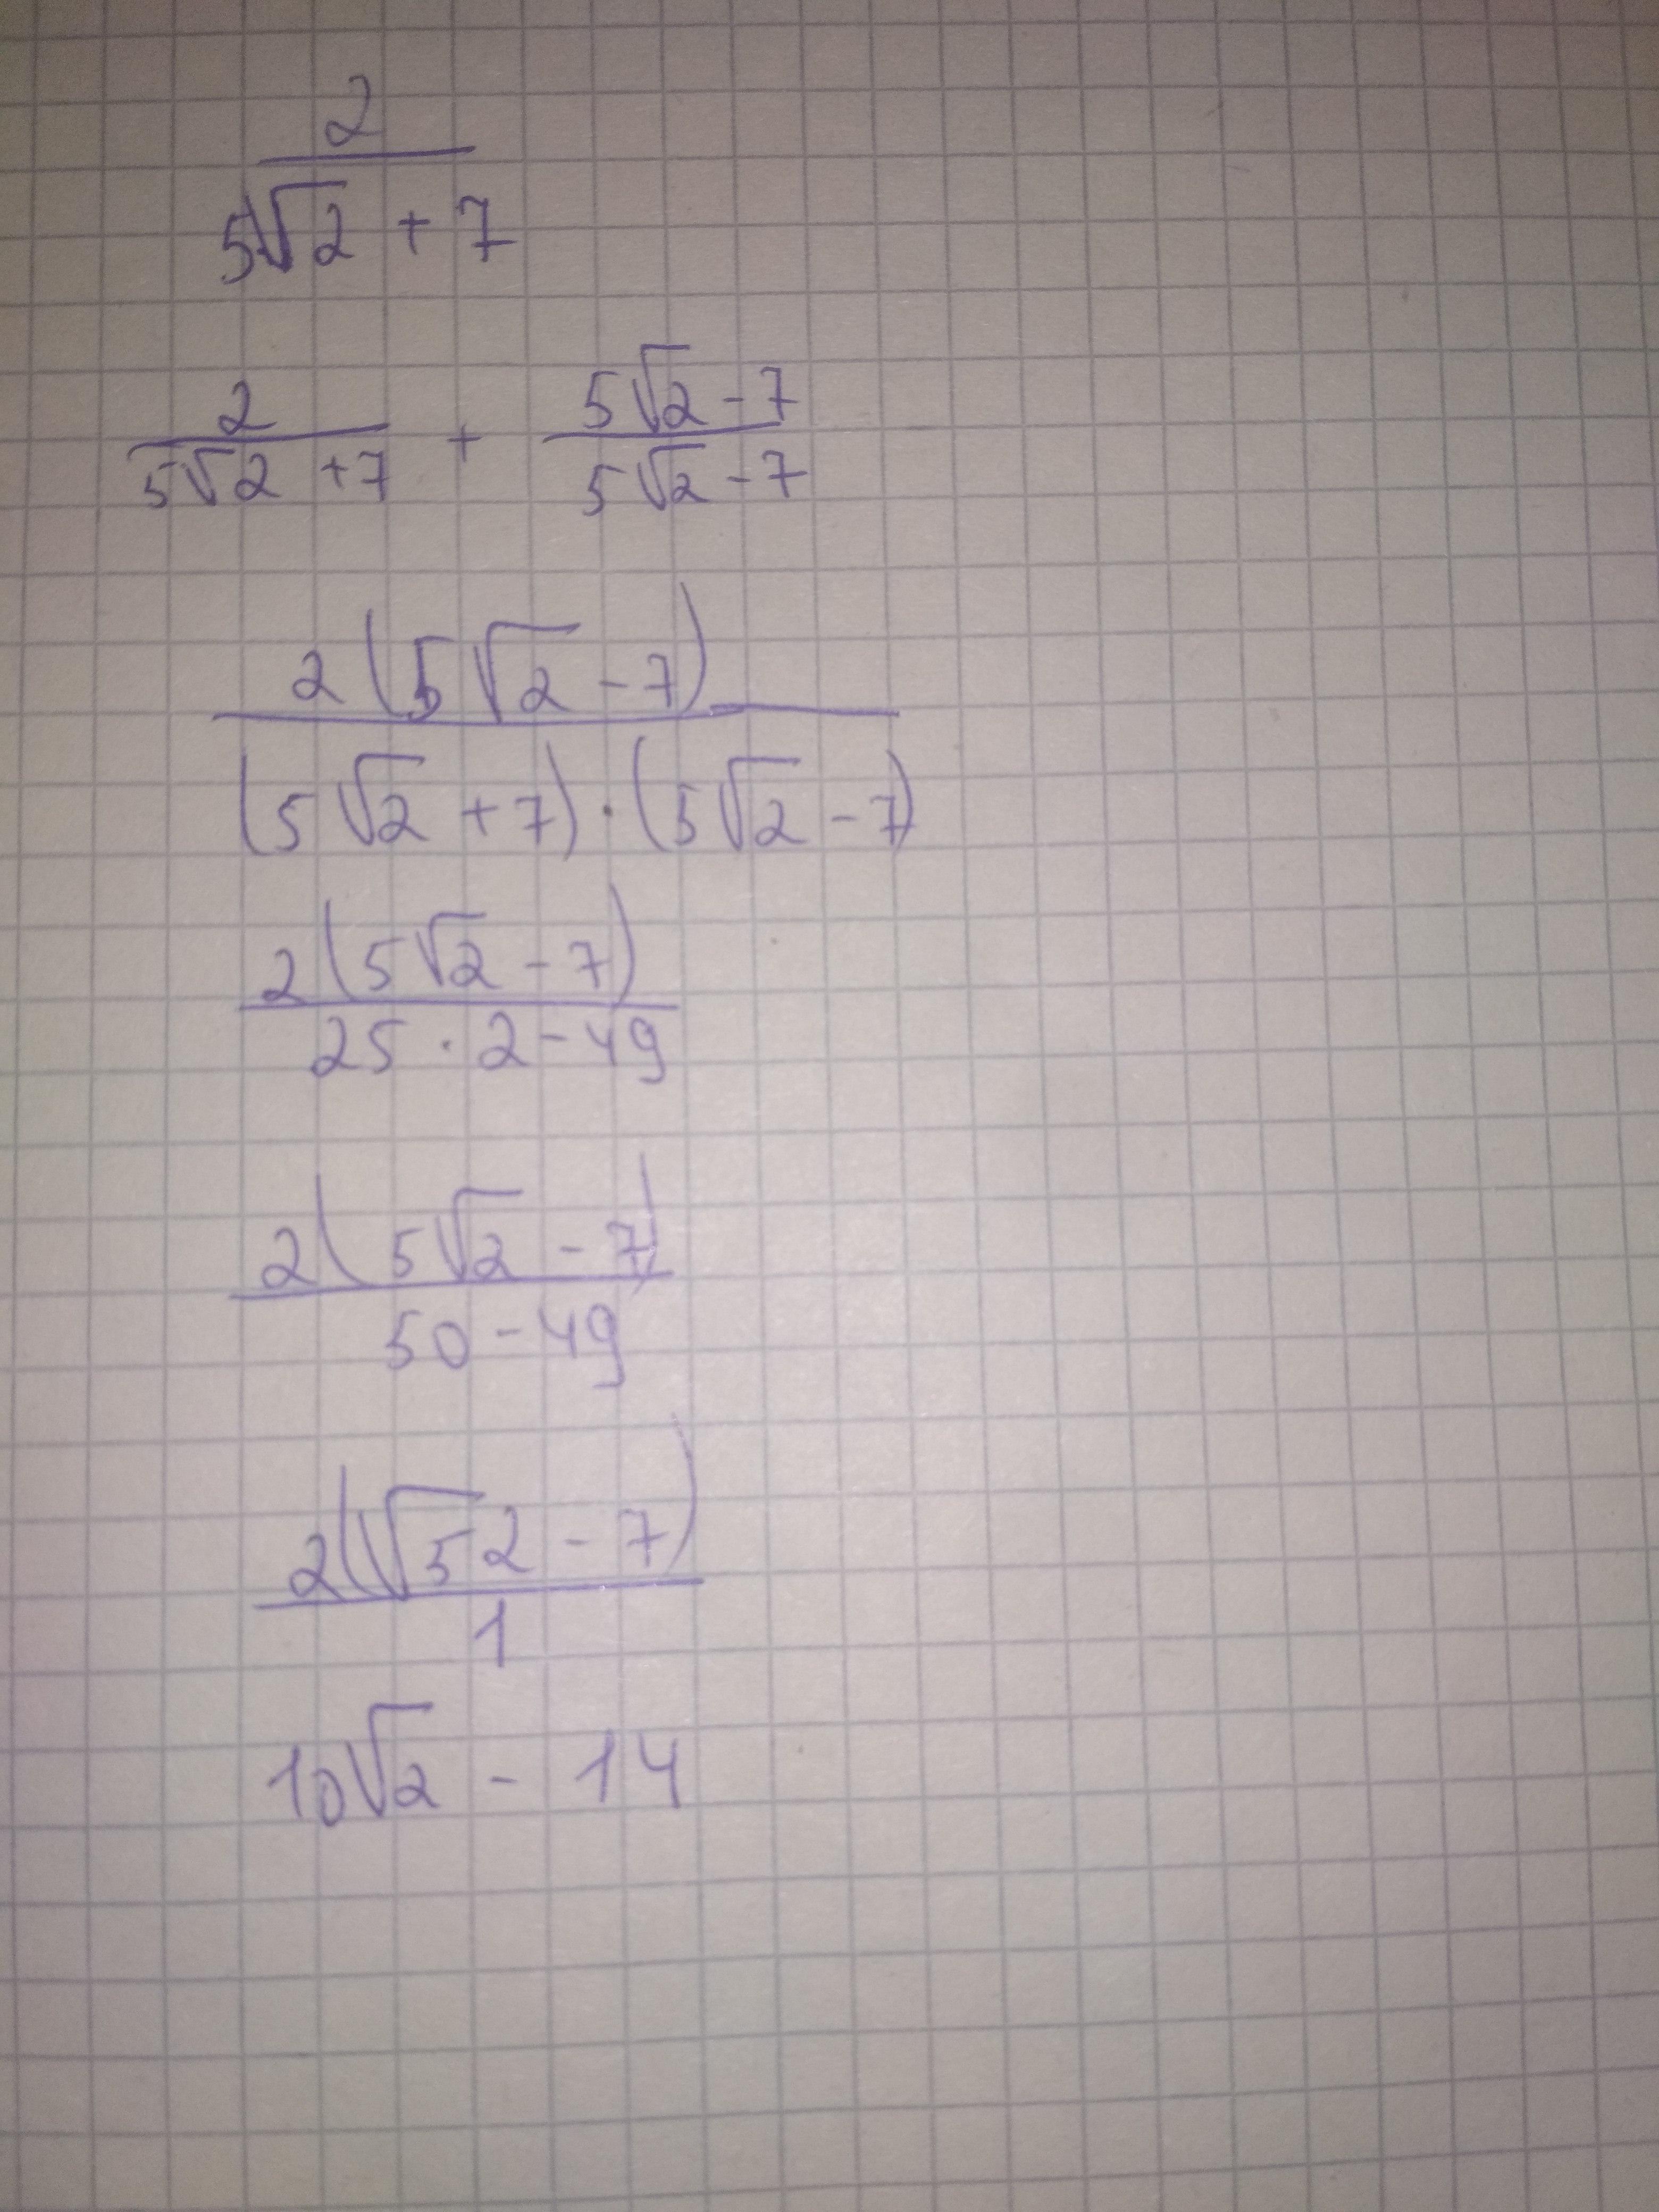 2
5√2 + 7
2 + 5√2 - 7
5√2 + 7 5√2 - 7
2(5√2 - 7)
(5√2 + 7) · (5√2 - 7)
2(5√2 - 7)
25 · 2 - 49
2(5√2 - 7)
50 - 49
2(√52 - 7)
1
10√2 - 14